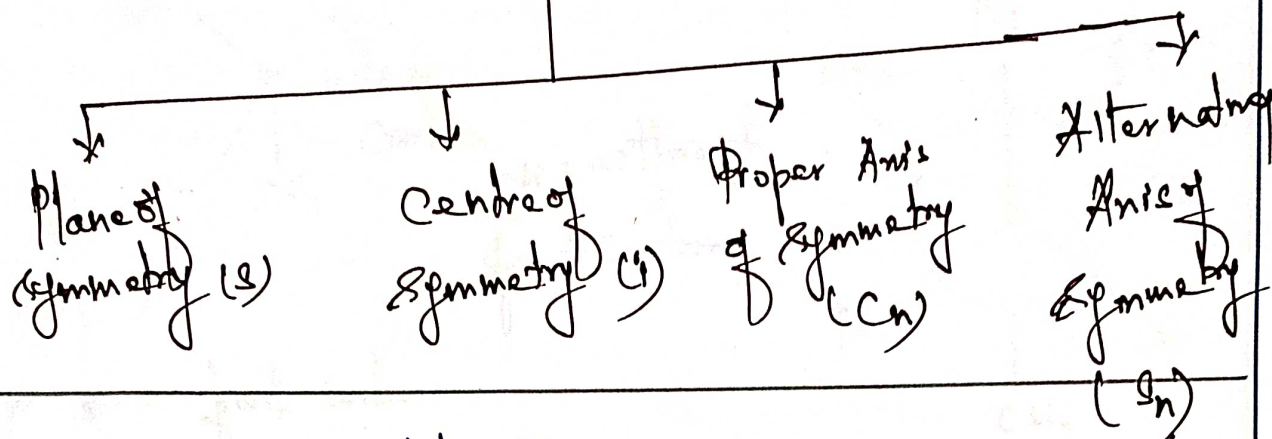 Plane of
symmetry (s)
Centre of
symmetry (i)
Proper Axis
of symmetry
(Cn)
Alternating
Axis of
symmetry
(Sn)